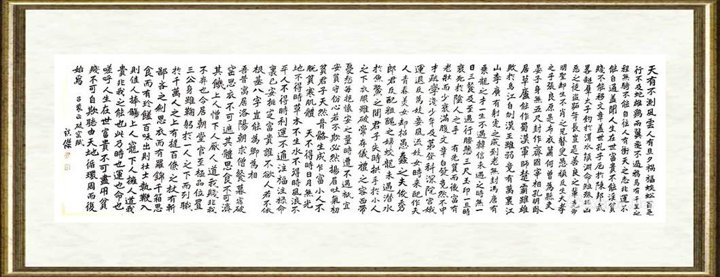 天有不測風雲人有旦夕禍福蜈蚣百足
行不及蛇雄雞兩翼飛不過鴉馬有千里之
程無騎不能自往人有衝天之志非運不
能自通蓋聞人生在世富貴不能淫貧
賤不能移文章蓋世孔子厄於陳邦武
略超群太公釣於渭水顏淵命短殊非凶
惡之徒盜跖年長豈是善良之輩堯帝
明聖卻生不肖之兒瞽叟愚頑反生大孝
之子張良原是布衣蕭何曾為縣吏
晏子身無五尺封作齊國宰相孔明臥
居草廬能作蜀漢軍師楚霸雖雄
敗於烏江自刎漢王雖弱竟有萬里江
山李廣有射虎之威到老無封馮唐有
乘龍之才一生不遇韓信未遇之時無一
日三餐及至遇行腰懸三尺玉印一旦時
衰死於陰人之手有先貧而後富有
老壯而少衰滿腹文章白髮竟然不中
才疏學淺少年及第登科深院宮娥
運退反為妓妾風流妓女時來配作夫
人青春美女卻招愚蠢之夫俊秀
郎君反配粗醜之婦蛟龍未遇潛水
於魚鱉之間君子失時拱手於小人
之下衣服雖破常存儀禮之容面帶
憂愁每抱懷安之量時遭不遇只宜
安貧守份心若不欺必然揚眉吐氣初
貧君子天然骨骼生成乍富小人不
脫貧寒肌體天不得時日月無光
地不得時草木不生水不得時風浪不
平人不得時利運不通注福注祿命
裏已安排定富貴誰不欲人若不依
根基八字豈能為卿為相
吾昔寓居洛陽朝求僧餐暮宿破
窯思衣不可遮其體思食不可濟
其饑上人憎下人厭人道我賤非我
不棄也今居朝堂官至極品位置
三公身雖鞠躬於一人之下而列職
於千萬人之上有撻百僚之杖有斬
鄙吝之劍思衣而有羅錦千箱思
食而有珍饈百味出則壯士執鞭入
則佳人捧觴上人寵下人擁人道我
貴非我之能也此乃時也運也命也
嗟呼人生在世富貴不可盡用貧
賤不可自欺聽由天地循環周而復
始焉 呂蒙正破窯賦